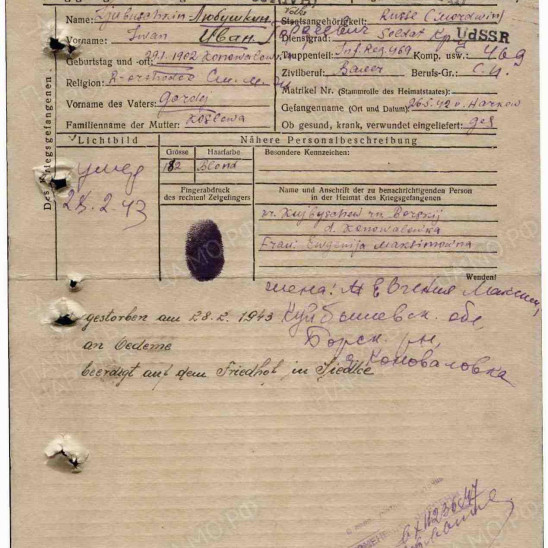 Name: Ljubuschkin Любушкин
Vorname: Iwan Иван
Geburtstag und -ort: 1902 Konowalow
Religion:
Vorname des Vaters: Gordej
Familienname der Mutter: Koslowa
Staatsangehörigkeit: Russe (Mordwin)
UdSSR
Dienstgrad: Soldat
Truppenteil: Inf. Reg. 469 Komp. usw.:
Zivilberuf: Bauer Berufs-Gr.:
Matrikel Nr. (Stammrolle des Heimatstaates):
Gefangennahme (Ort und Datum): 26.5.42 b. Harkow
Ob gesund, krank, verwundet eingeliefert: ges
Des Kriegsgefangenen
Lichtbild
умер
28.2.43
Nähere Personalbeschreibung
Grösse Haarfarbe
182 Blond
Besondere Kennzeichen:
Fingerabdruck
des rechten! Zeigefingers
Name und Anschrift der zu benachrichtigenden Person
in der Heimat des Kriegsgefangenen
Kujbyschew Borskij
d. Konowalowka
Frau: Ewgenija Maksimowna
Wenden!
жена: Евгения Максим
gestorben am 28.2.1943
Куйбышевск. обл,
an Oedeme
Борск. рн,
beerdigt auf dem Friedhof in Siedlce
Коноваловка